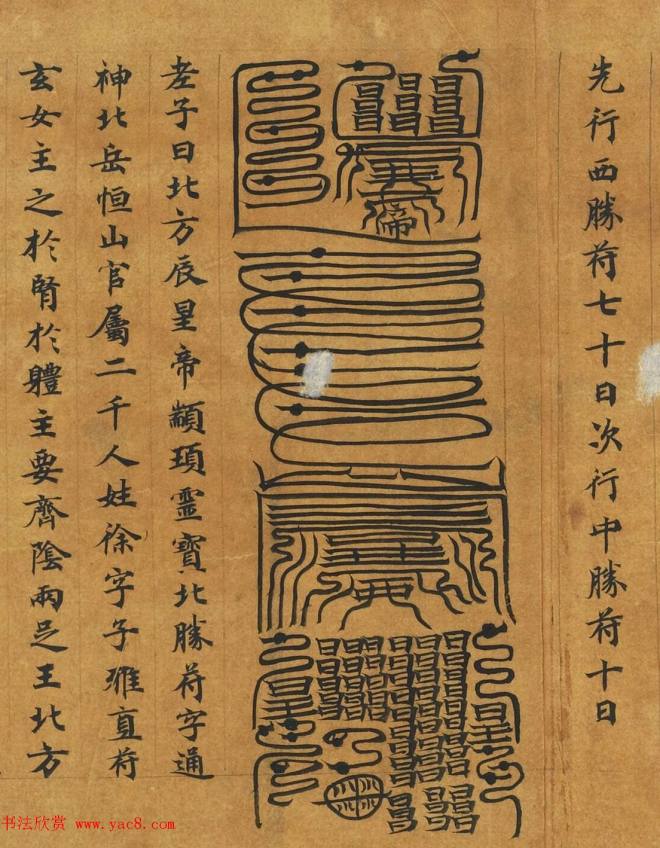 先行西勝苻七十日次行中勝苻十日
老子曰北方辰星帝顓頊靈寶北勝苻字通
神北岳恒山官屬二千人姓徐字子雅直苻
玄女主之於腎於體主要齊陰兩足王北方
书法欣赏 www.yac8.com